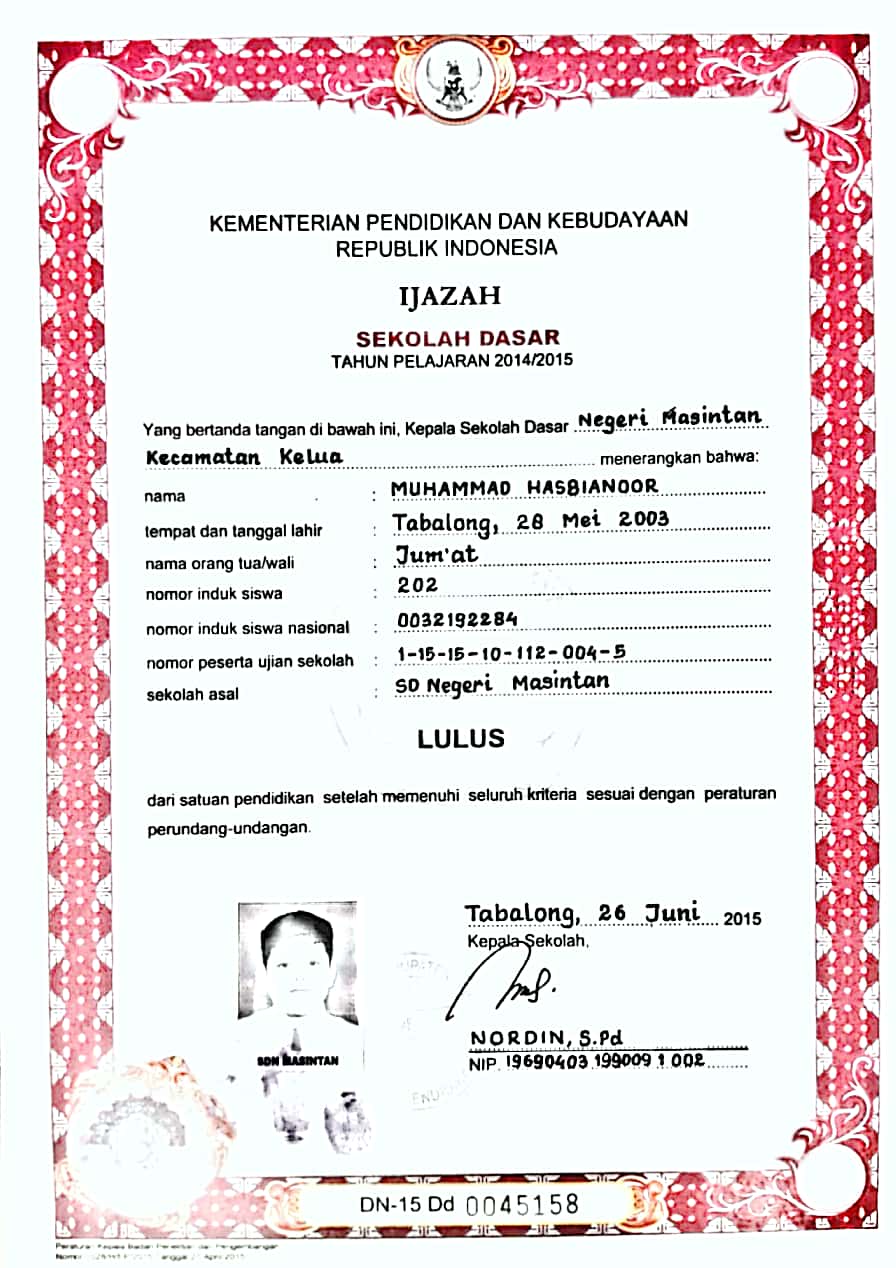 KEMENTERIAN PENDIDIKAN DAN KEBUDAYAAN
REPUBLIK INDONESIA
IJAZAH
SEKOLAH DASAR
TAHUN PELAJARAN 2014/2015
Yang bertanda tangan di bawah ini, Kepala Sekolah Dasar Negeri Masintan
Kecamatan Kelua menerangkan bahwa:
nama : MUHAMMAD HASBIANOOR
tempat dan tanggal lahir : Tabalong, 28 Mei 2003
nama orang tua/wali : Jum'at
nomor induk siswa : 202
nomor induk siswa nasional : 0032192284
nomor peserta ujian sekolah : 1-15-15-10-112-004-5
sekolah asal : SD Negeri Masintan
LULUS
dari satuan pendidikan setelah memenuhi seluruh kriteria sesuai dengan peraturan
perundang-undangan.
Tabalong, 26 Juni 2015
Kepala Sekolah,
NORDIN, S.Pd
NIP. 19690403 199009 1 002
SDN MASINTAN
DN-15 Dd 0045158
Peraturan Kepala Badan Penelitian dan Pengembangan
Nomor